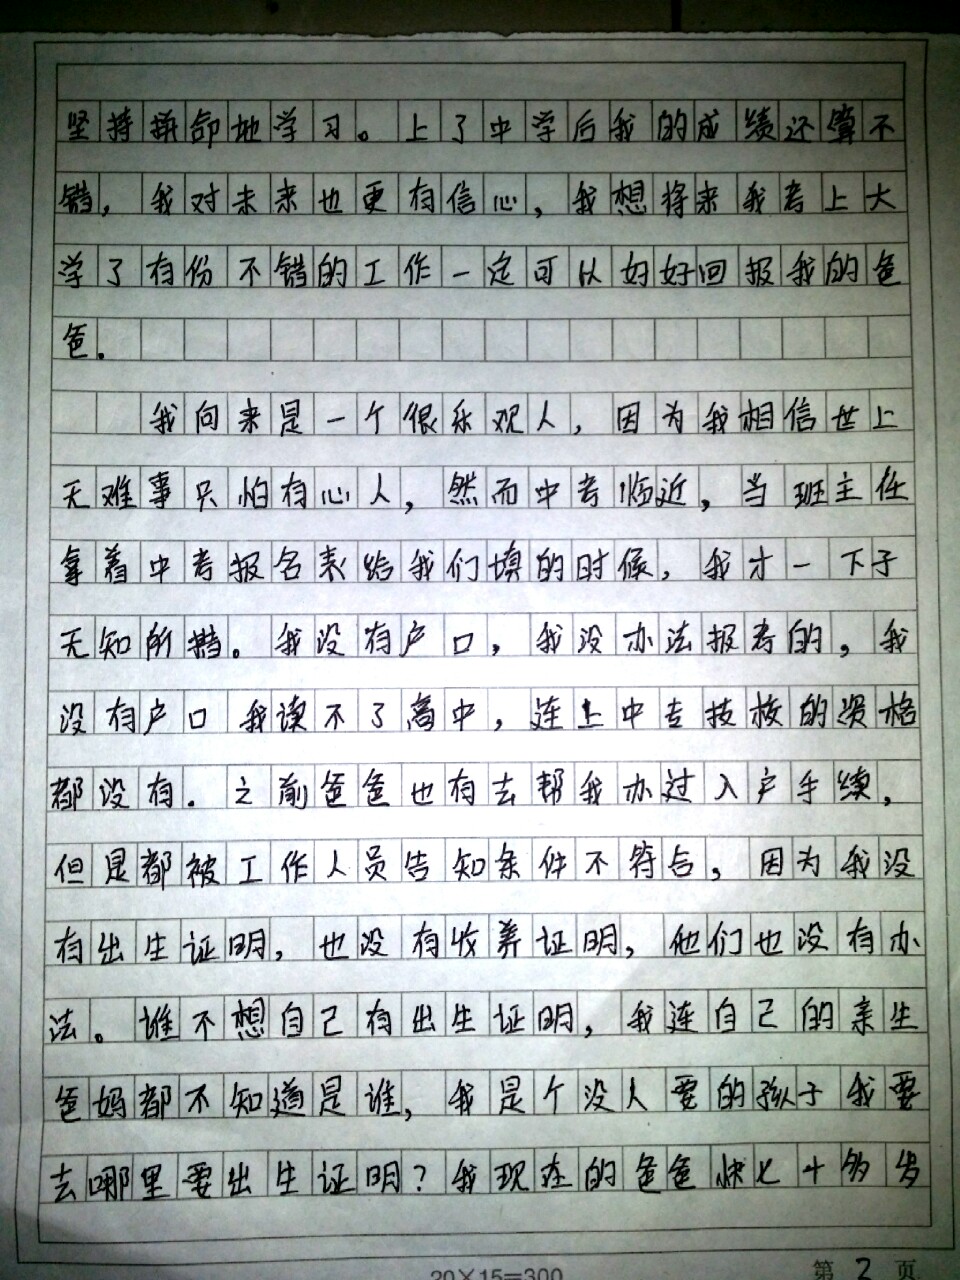 坚持拼命地学习。上了中学后我的成绩还算不
错，我对未来也更有信心，我想将来我考上大
学了有份不错的工作一定可以好好回报我的爸
爸。
我向来是一个很乐观人，因为我相信世上
无难事只怕有心人，然而中考临近，当班主任
拿着中考报名表给我们填的时候，我才一下子
无知所措。我没有户口，我没办法报考的，我
没有户口我读不了高中，连上中专技校的资格
都没有。之前爸爸也有去帮我办过入户手续，
但是都被工作人员告知条件不符合，因为我没
有出生证明，也没有收养证明，他们也没有办
法。谁不想自己有出生证明，我连自己的亲生
爸妈都不知道是谁，我是个没人要的孩子我要
去哪里要出生证明？我现在的爸爸快七十多岁
20×15=300
第2页